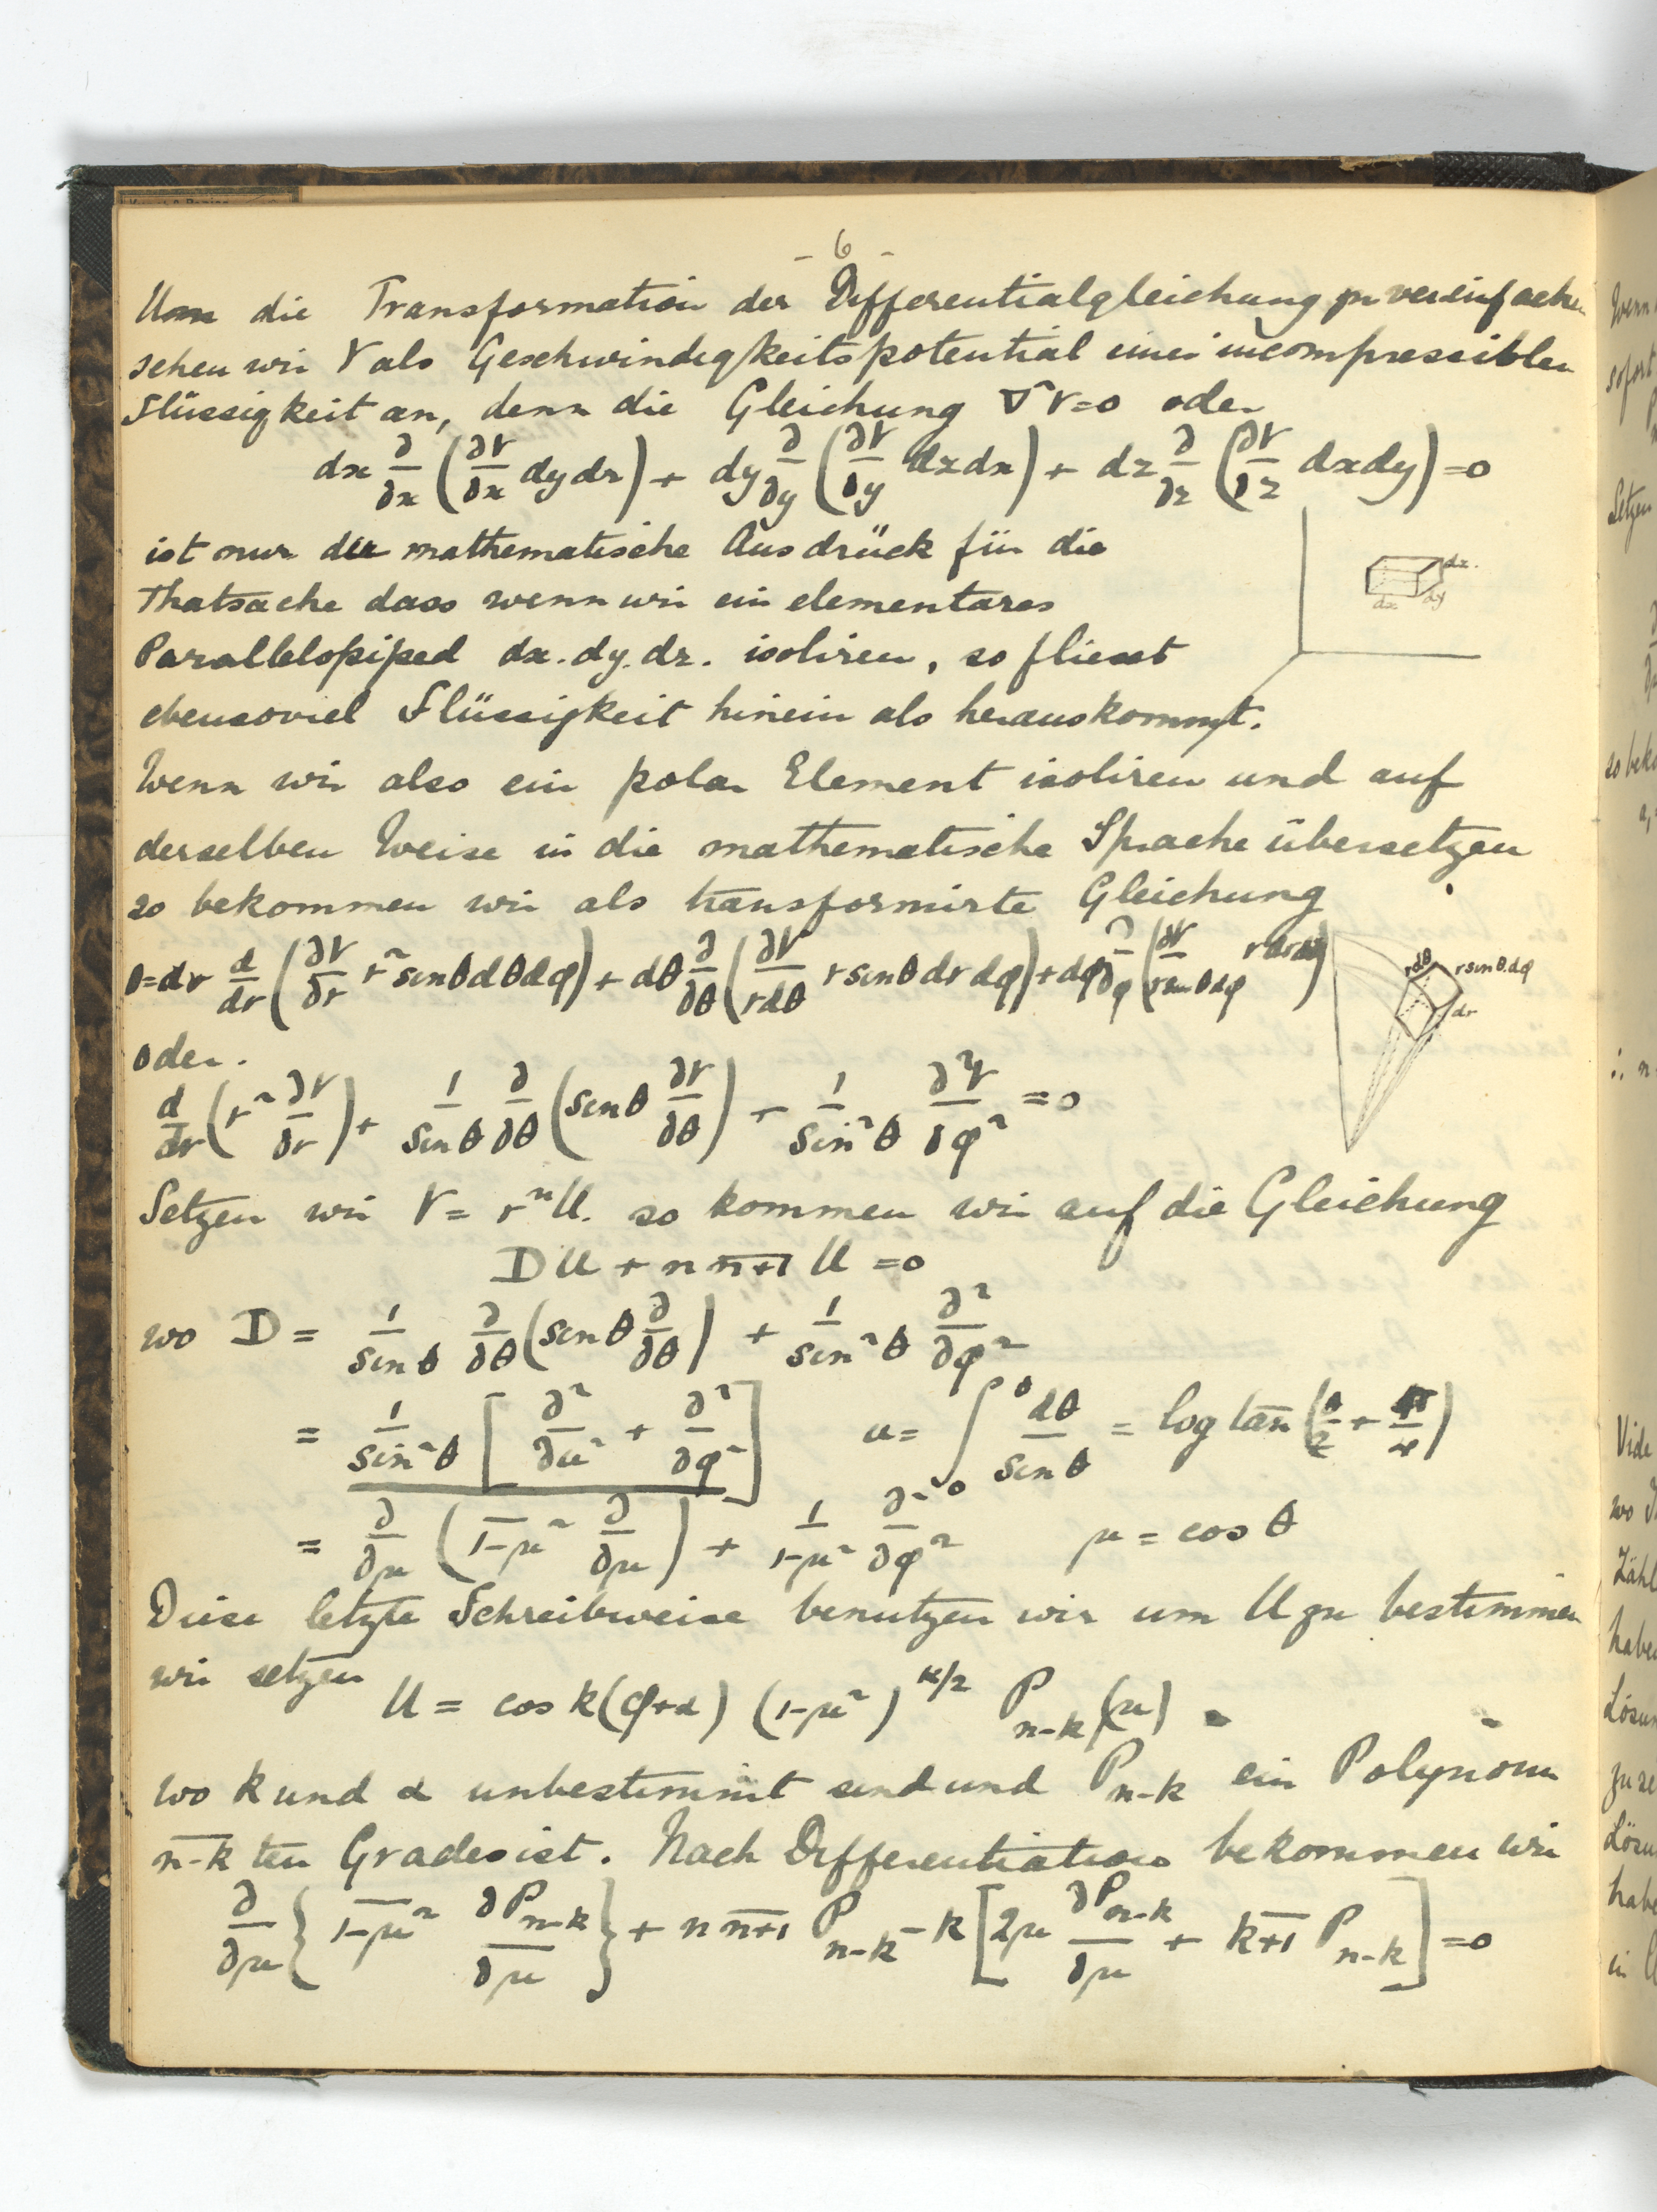 - 6 -
Um die Transformation der Differentialgleichung zu vereinfachen
sehen wir V als Geschwindigkeitspotential einer incompressiblen
Flüssigkeit an, denn die Gleichung ∇²V=0 oder
dx ∂/∂x (∂V/∂x dydz) + dy ∂/∂y (∂V/∂y dzdx) + dz ∂/∂z (∂V/∂z dxdy) =0
ist nur die mathematische Ausdrück für die
Thatsache dass wenn wir ein elementares
Parallelopiped dx.dy.dz. isoliren, so fliesst
ebensoviel Flüssigkeit hinein als herauskommt.
dz.
dx dy
Wenn wir also ein polar Element isoliren und auf
derselben Weise in die mathematische Sprache übersetzen
so bekommen wir als transformirte Gleichung
0=dr d/dr (∂V/∂r r² sinθdθdφ) + dθ ∂/∂θ (∂V/rdθ r sinθ dr dφ) + dφ ∂/∂φ (∂V/r sinθ dφ r dr dθ)
rdθ r sinθ.dφ
dr
oder.
d/dr (r² ∂V/∂r) + 1/sinθ ∂/∂θ (sinθ ∂V/∂θ) + 1/sin²θ ∂²V/∂φ² =0
Setzen wir V = rⁿU. so kommen wir auf die Gleichung
DU + n n+1 U =0
wo D = 1/sinθ ∂/∂θ (sinθ ∂/∂θ) + 1/sin²θ ∂²/∂φ²
= 1/sin²θ [∂²/∂u² + ∂²/∂φ²] u= ∫₀^θ dθ/sinθ = log tan (θ/2 + π/4)
= ∂/∂μ (1-μ² ∂/∂μ) + 1/1-μ² ∂²/∂φ² μ = cos θ
Diese letzte Schreibweise benutzen wir um U zu bestimmen
wir setzen
U = cos k(φ+α) (1-μ²)^k/2 P_n-k(μ)
wo k und α unbestimmt sind und P_n-k ein Polynom
n-k ten Grades ist. Nach Differentiation bekommen wir
∂/∂μ {1-μ² ∂P_n-k/∂μ} + n n+1 P_n-k - k [2μ ∂P_n-k/∂μ + k+1 P_n-k] =0